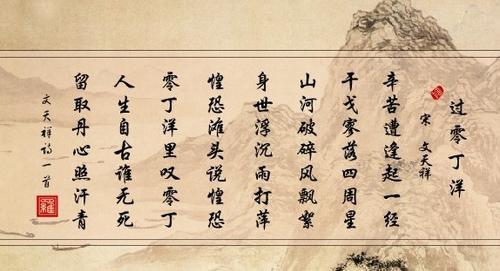 过零丁洋
宋 文天祥
辛苦遭逢起一经
干戈寥落四周星
山河破碎风飘絮
身世浮沉雨打萍
惶恐滩头说惶恐
零丁洋里叹零丁
人生自古谁无死
留取丹心照汗青
文天祥诗一首
羅